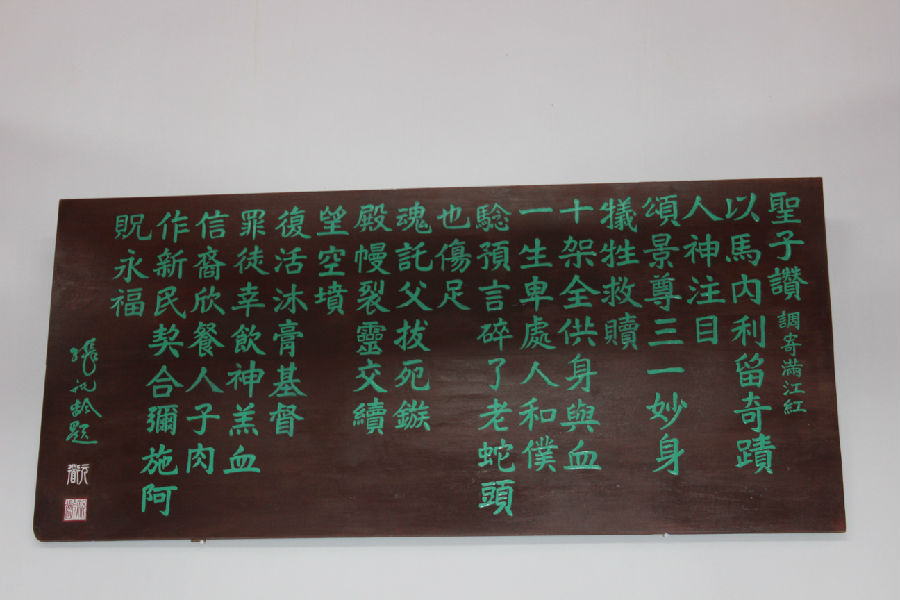 聖子讚 調寄滿江紅
以馬內利留奇蹟
人神注目
頌景尊三一妙身
犧牲救贖
十架全供身與血
一生卑處人和僕
驗預言碎了老蛇頭
也傷足
魂託父拔死鏃
殿幔裂靈交續
堂空墳
復活沐膏基督
罪徒幸飲神羔血
信裔欣餐人子肉
作新民契合彌施阿
貺永福
題